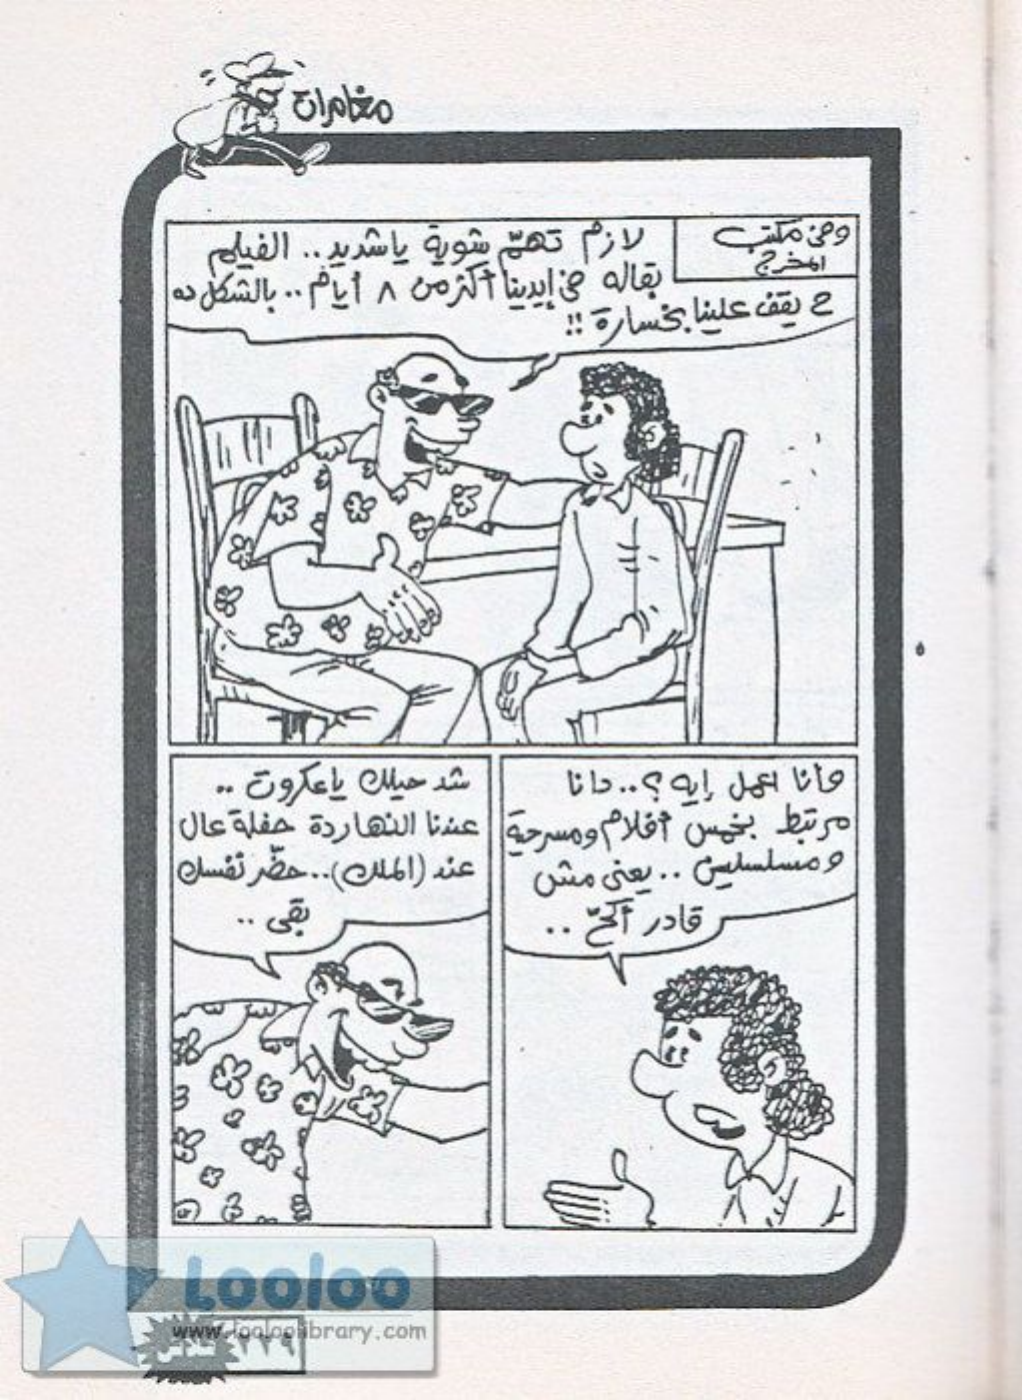 مغامرات
وفى مكتب
المخرج
لازم تهمّ شوية ياشديد.. الفيلم
بقاله فى إيدينا أكثر من ٨ أيام.. بالشكل ده
ح يقف علينا بخسارة !!
وأنا اعمل إيه ؟.. دانا
مرتبط بخمس أفلام ومسرحية
ومسلسلين .. يعنى مش
قادر أكحّ ..
شد حيلك ياعكروت ..
عندنا النهاردة حفلة عال
عند (الملك).. حضّر نفسك
بقى ..
Looloo
www.looloolibrary.com
فلاش ٢٢٩